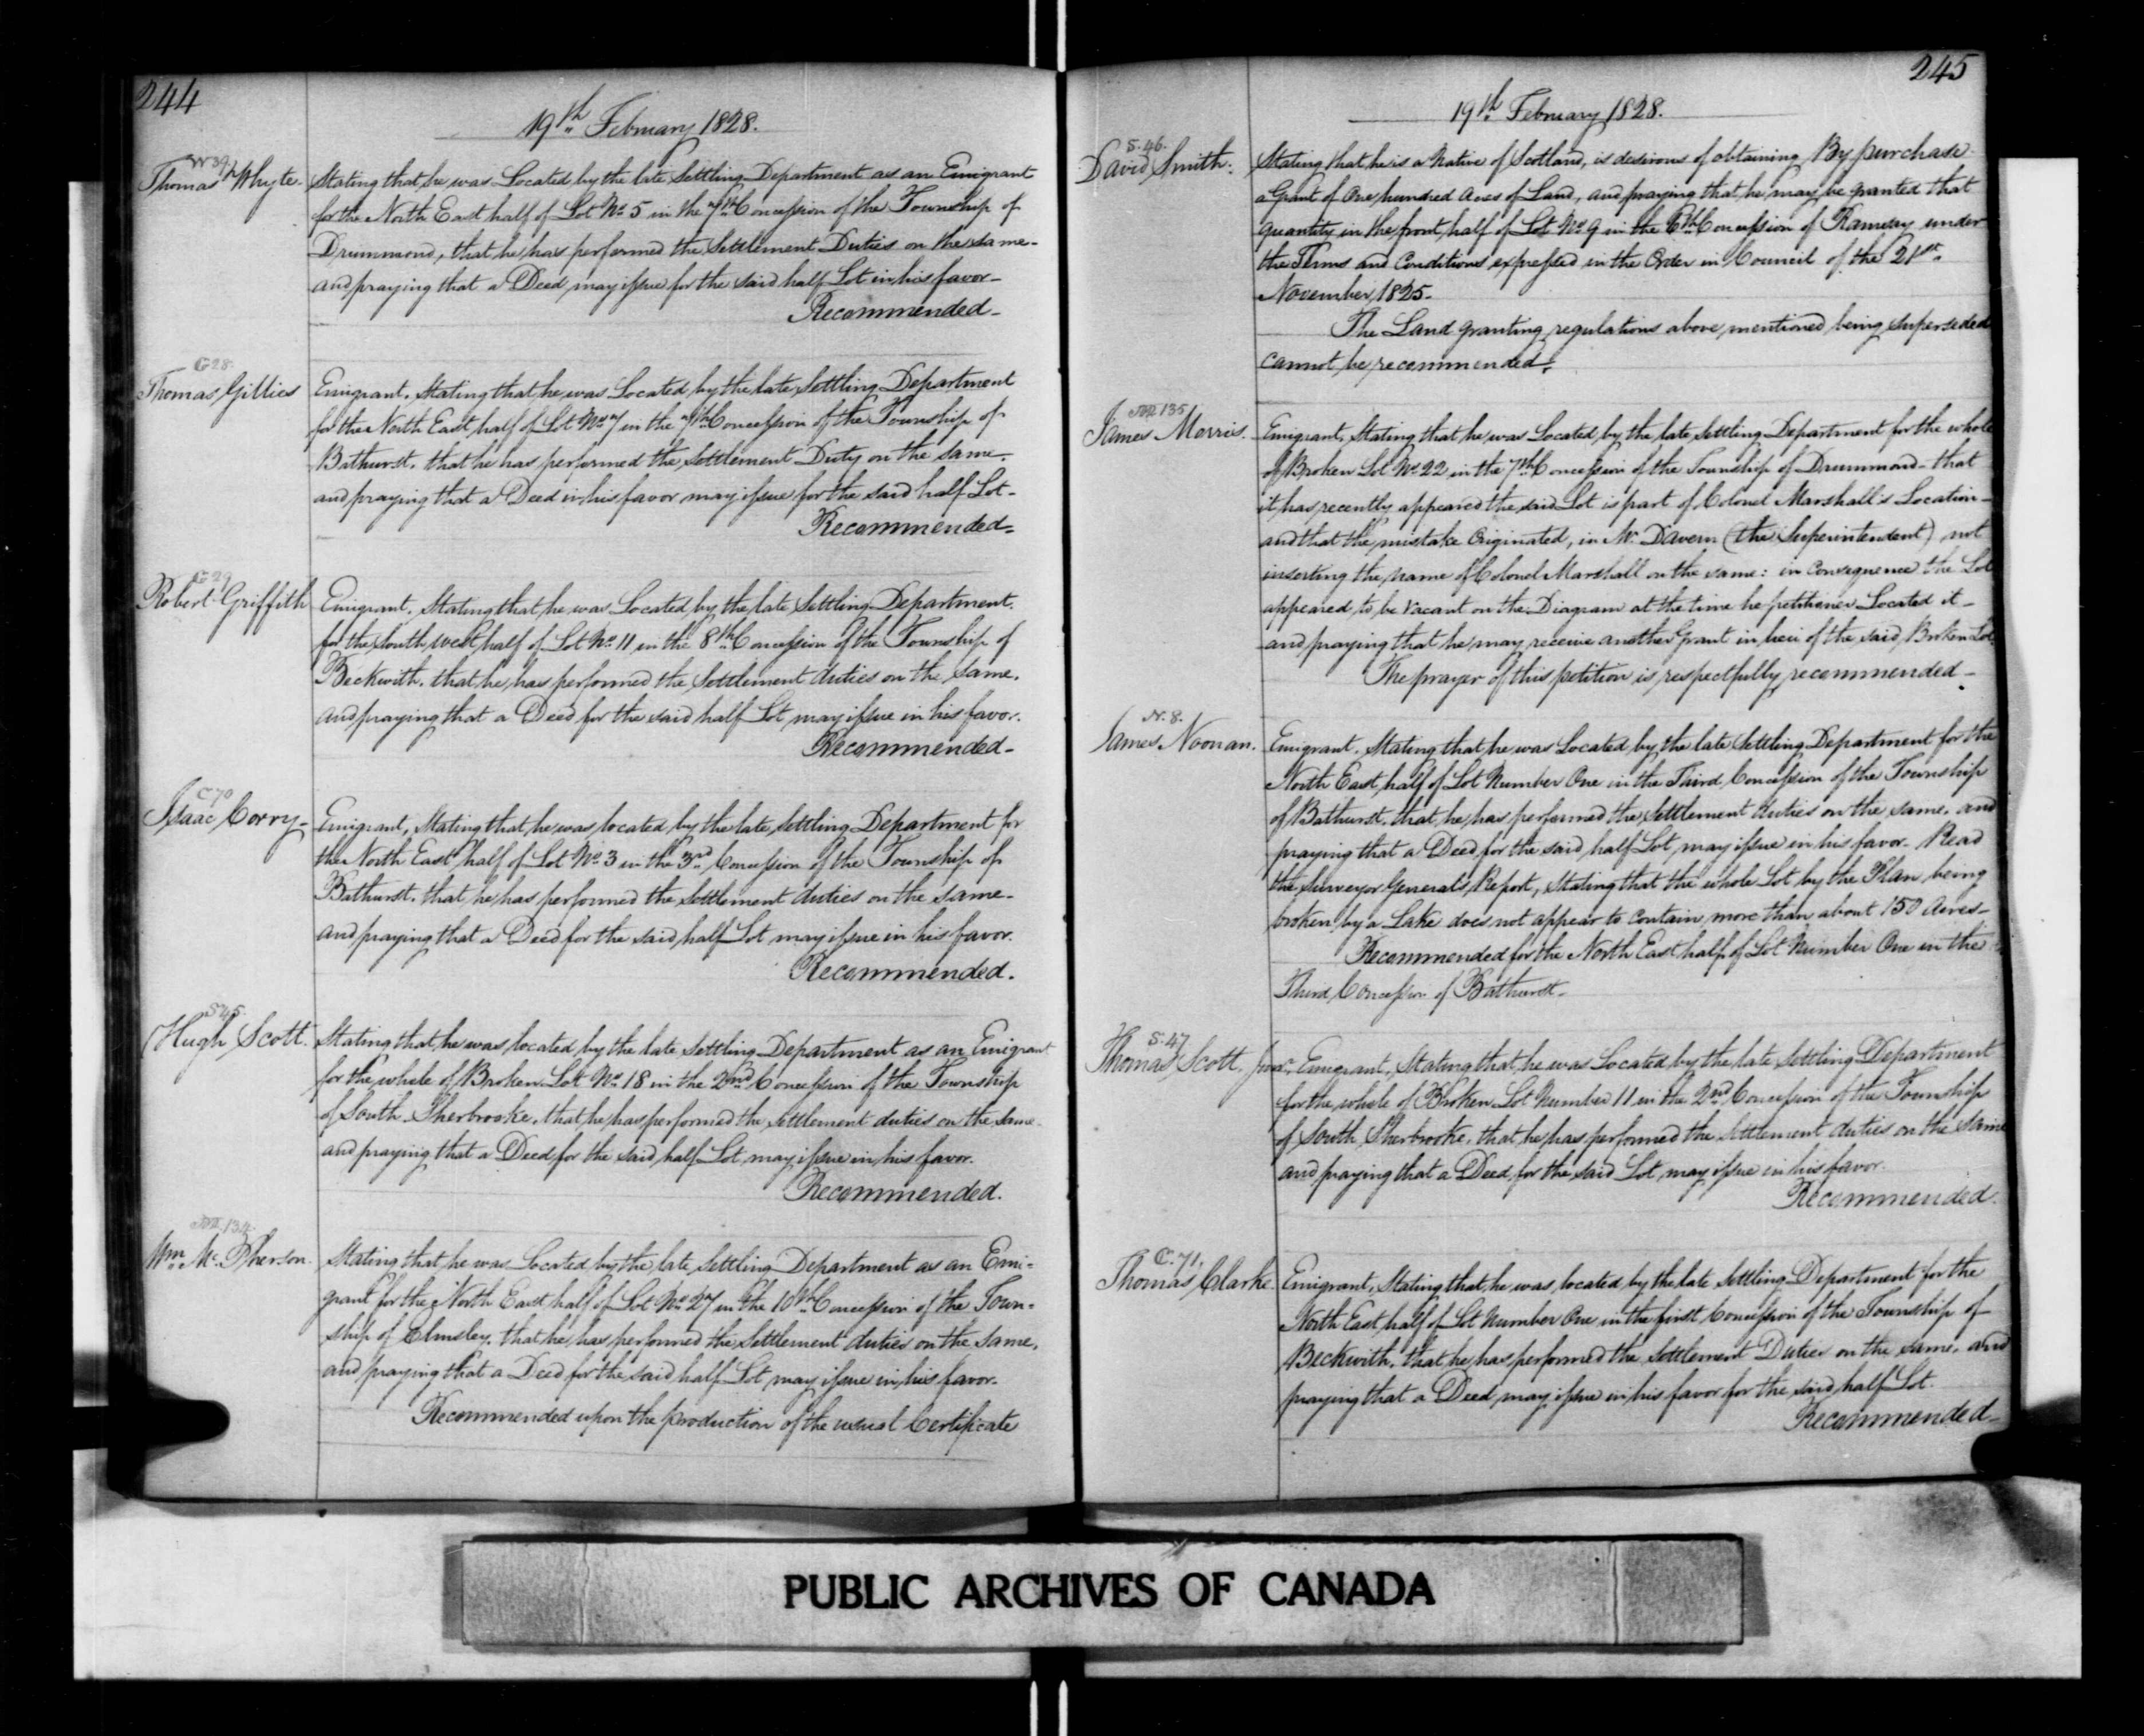 244
19th. February 1828.
W 39.
Thomas Whyte.
Stating that he was Located by the late Settling Department as an Emigrant
for the North East half of Lot No. 5 in the 7th. Concession of the Township of
Drummond, that he has performed the Settlement Duties on the same-
and praying that a Deed may issue for the said half Lot in his favor-
Recommended-
G 28.
Thomas Gillies
Emigrant. Stating that he was Located by the late Settling Department
for the North East half of Lot No. 7 in the 7th. Concession of the Township of
Bathurst. that he has performed the Settlement Duty on the same.
and praying that a Deed in his favor may issue for the said half Lot-
Recommended-
G 29
Robert Griffith
Emigrant. Stating that he was Located by the late Settling Department.
for the South West half of Lot No. 11 in the 8th. Concession of the Township of
Beckwith. that he has performed the Settlement duties on the same.
and praying that a Deed for the said half Lot may issue in his favor.
Recommended-
C 70
Isaac Corry-
Emigrant, Stating that he was located by the late Settling Department for
the North East half of Lot No. 3 in the 3rd Concession of the Township of
Bathurst. that he has performed the settlement duties on the same-
and praying that a Deed for the said half Lot may issue in his favor.
Recommended.
S 45.
Hugh Scott.
Stating that he was located by the late Settling Department as an Emigrant
for the whole of Broken Lot No. 18 in the 2nd Concession of the Township
of South Sherbrooke. that he has performed the settlement duties on the same
and praying that a Deed for the said half Lot may issue in his favor.
Recommended.
M. 134.
Wm. Mc. Pherson.
Stating that he was Located by the late Settling Department as an Emi-
grant for the North East half of Lot No. 27 in the 10th. Concession of the Town-
ship of Elmsley. that he has performed the Settlement duties on the same,
and praying that a Deed for the said half Lot may issue in his favor.
Recommended upon the production of the usual Certificate
245
19th. February 1828.
S. 46.
David Smith.
Stating that he is a Native of Scotland, is desirous of obtaining By purchase
a Grant of One hundred Acres of Land, and praying that he may be granted that
quantity in the front half of Lot No. 9 in the 6th. Concession of Ramsay under
the Terms and Conditions expressed in the Order in Council of the 21st.
November 1825-
The Land granting regulations above mentioned being superseded
cannot be recommended.
M 135
James Morris.
Emigrant, Stating that he was Located by the late Settling Department for the whole
of Broken Lot No. 22 in the 7th Concession of the Township of Drummond- that
it has recently appeared the said Lot is part of Colonel Marshall's Location-
and that the mistake Originated, in Mr. Davern (the Superintendent) not
inserting the name of Colonel Marshall on the same: in Consequence the Lot
appeared to be vacant on the Diagram at the time he petitioner Located it-
and praying that he may receive another Grant in lieu of the said Broken Lot
The prayer of this petition is respectfully recommended-
N. 8.
James Noonan.
Emigrant. Stating that he was Located by the late Settling Department for the
North East half of Lot Number One in the Third Concession of the Township
of Bathurst. that he has performed the Settlement duties on the same. and
praying that a Deed for the said half Lot may issue in his favor- Read
the Surveyor General's Report, Stating that the whole Lot by the Plan being
broken by a Lake does not appear to contain more than about 150 Acres-
Recommended for the North East half of Lot Number One in the
Third Concession of Bathurst-
S. 47
Thomas Scott
Emigrant, Stating that he was Located by the late Settling Department
for the whole of Broken Lot Number 11 in the 2nd Concession of the Township
of South Sherbrooke, that he has performed the Settlement duties on the same
and praying that a Deed for the said Lot may issue in his favor.
Recommended.
C. 71.
Thomas Clarke.
Emigrant, Stating that he was located by the late Settling Department for the
North East half of Lot Number One in the first Concession of the Township of
Beckwith. that he has performed the Settlement Duties on the same. and
praying that a Deed may issue in his favor for the said half Lot.
Recommended-
PUBLIC ARCHIVES OF CANADA